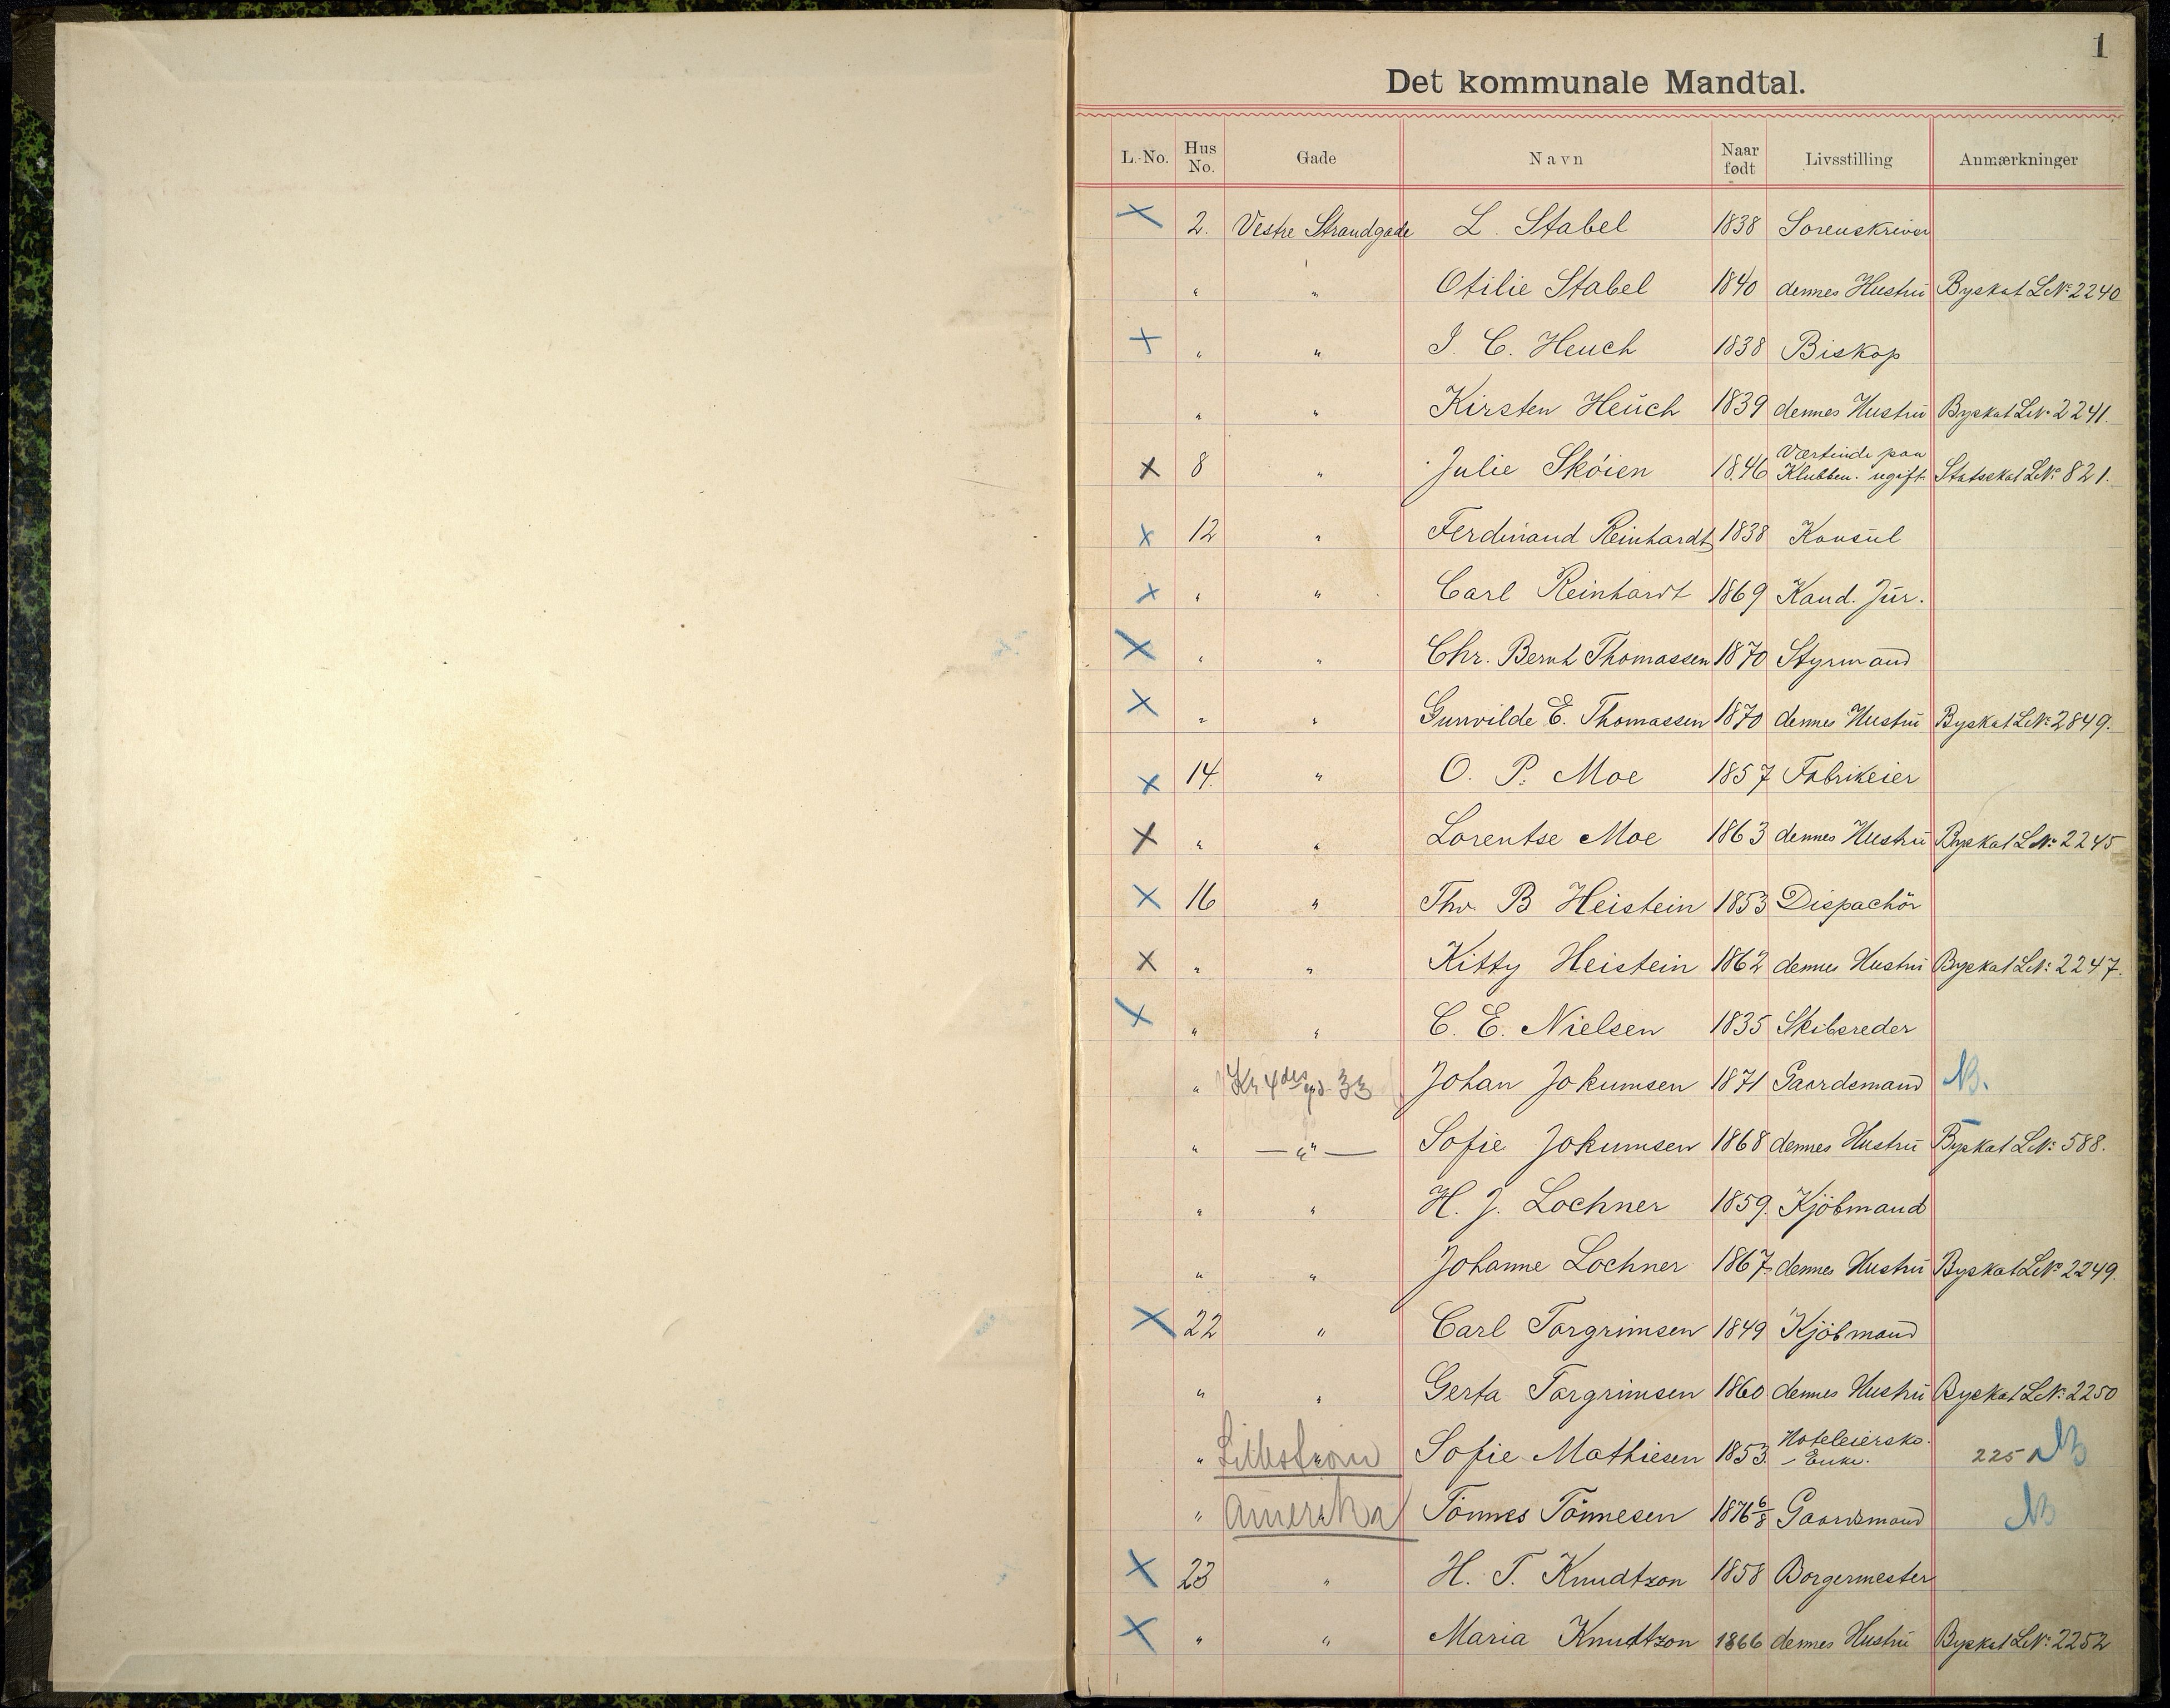 1
Det kommunale Mandtal.
L.-No. Hus No. Gade Navn Naar født Livsstilling Anmærkninger
X 2. Vestre Strandgade L. Stabel 1838 Sorenskriver
" " Otilie Stabel 1840 dennes Hustru Byskat LNo: 2240
X " " J. C. Heuch 1838 Biskop
" " Kirsten Heuch 1839 dennes Hustru Byskat LNo. 2241.
X 8 " Julie Sköien 1846 Værtinde paa Klubben. ugift. Statsskat LNo: 821.
X 12 " Ferdinand Reinhardt 1838 Konsul
X " " Carl Reinhardt 1869 Kand. Jur.
X " " Chr. Bernh Thomassen 1870 Styrmand
X " " Gunvilde E. Thomassen 1870 dennes Hustru Byskat LNo: 2849.
X 14. " O. P. Moe 1857 Fabrikeier
X " " Lorentse Moe 1863 dennes Hustru Byskat LNo: 2245
X 16 " Thv. B Heistein 1853 Dispachör
X " " Kitty Heistein 1862 dennes Hustru Byskat LNo: 2247.
X " " C. E. Nielsen 1835 Skibsreder
" Kr 4des gd. 33 Johan Jokumsen 1871 Gaardsmand NB.
" — " — Sofie Jokumsen 1868 dennes Hustru Byskat LNo: 588.
" " H. J. Lochner 1859. Kjöbmand
" " Johanne Lochner 1867 dennes Hustru Byskat LNo 2249.
X 22 " Carl Torgrimsen 1849 Kjöbmand
" " Gerta Torgrimsen 1860 dennes Hustru Byskat LNo: 2250
" Lillestrøm Sofie Mathiesen 1853. Hoteleierske - Enke. 2251 NB
" Amerika Tönnes Tönnesen 1876 6/8 Gaardsmand NB
X 23 " H. T. Knudtzon 1858 Borgermester
X " " Maria Knudtzon 1866 dennes Hustru Byskat LNo: 2252